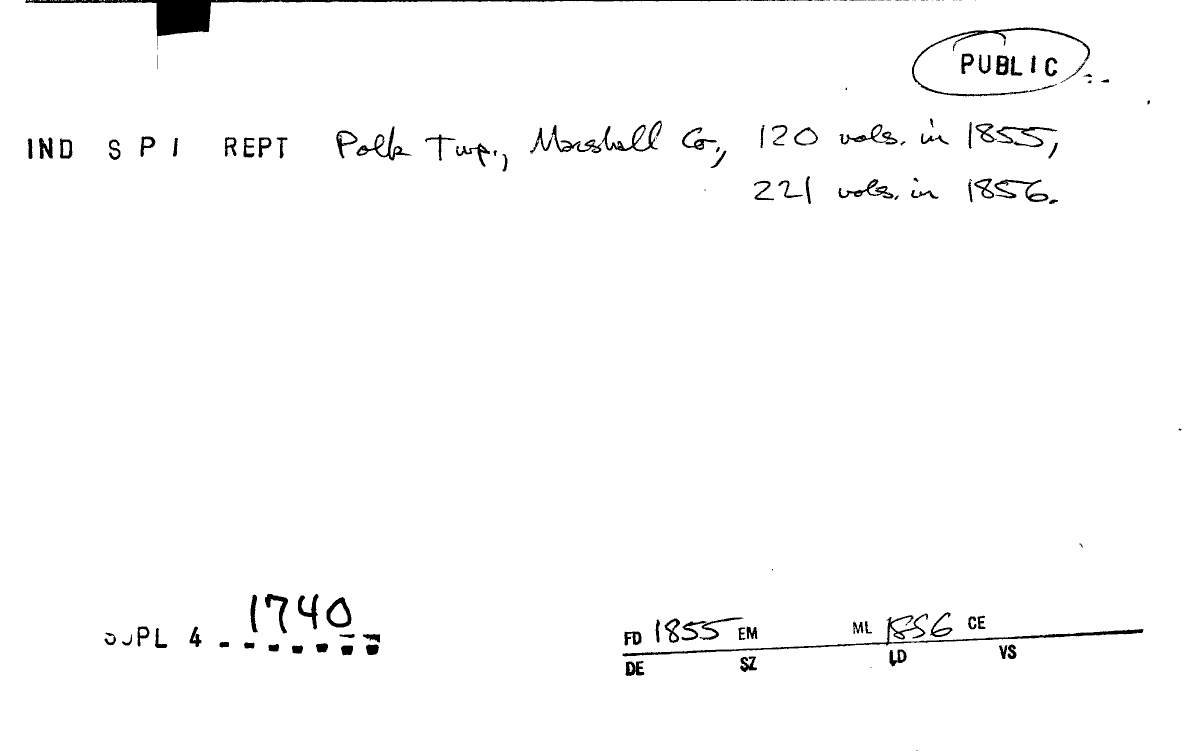 PUBLIC
IND S P I REPT Polk Twp., Marshall Co., 120 vols. in 1855,
221 vols. in 1856.
1740
PL 4
FD 1855 EM ML 1856 CE
DE SZ LD VS